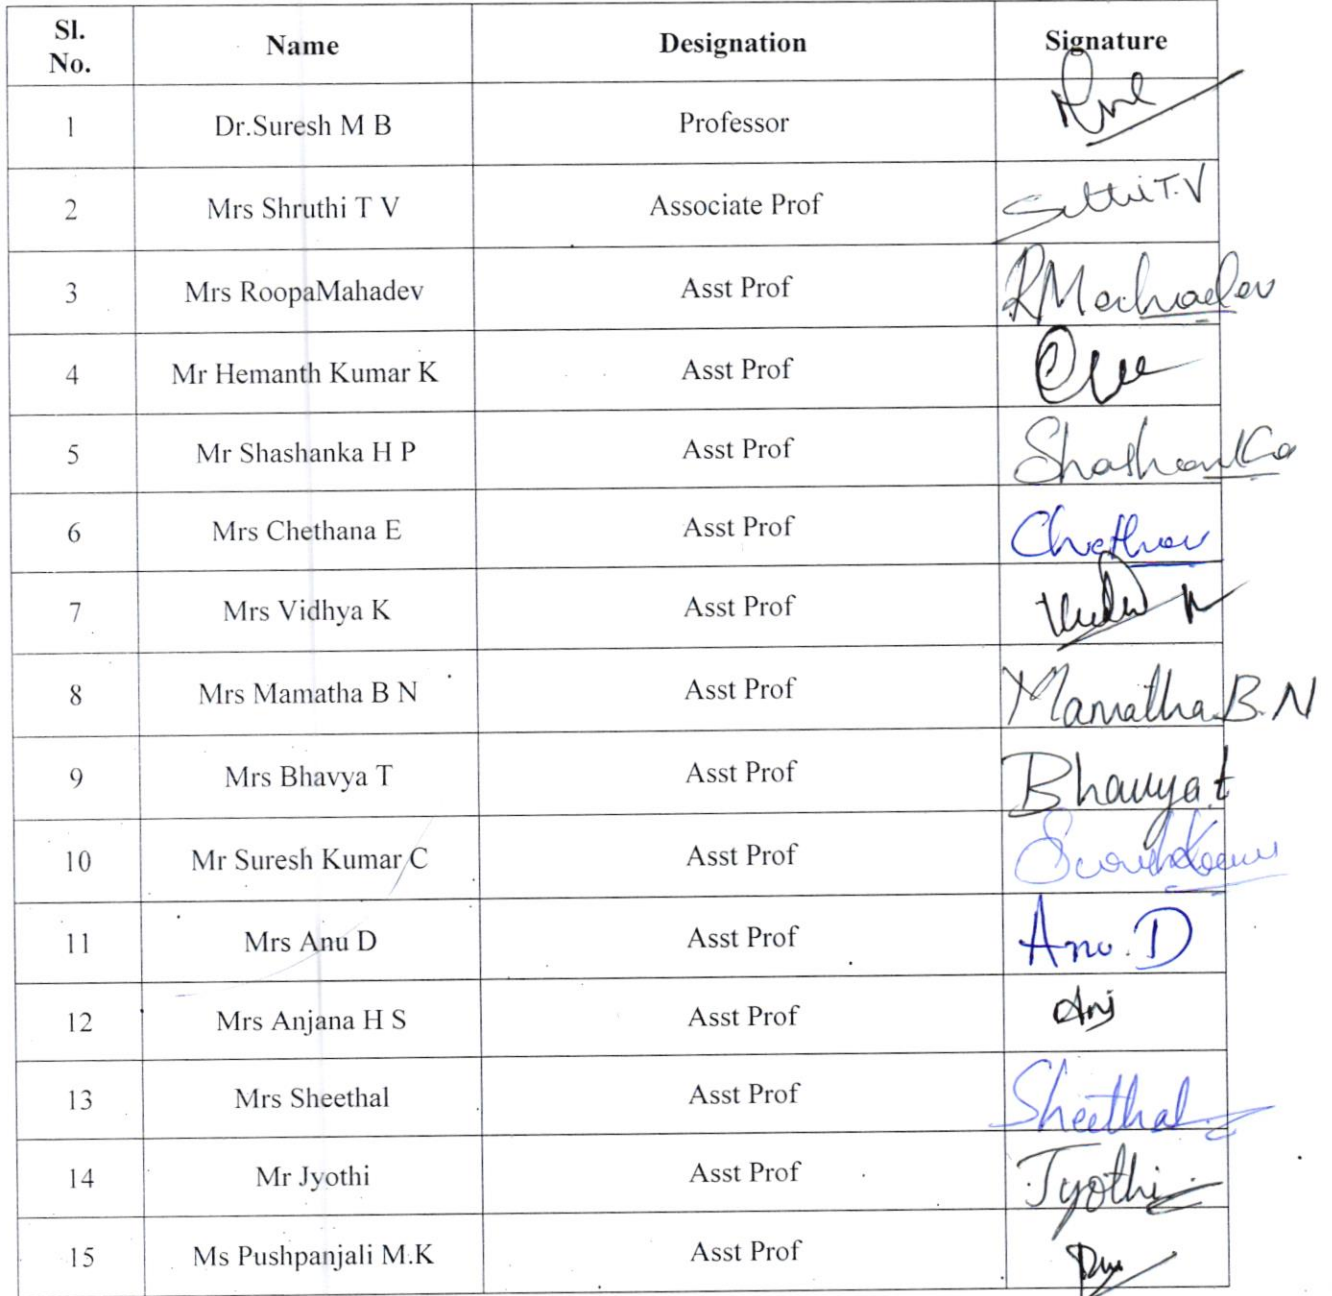 Sl. No. Name Designation Signature
1 Dr.Suresh M B Professor
2 Mrs Shruthi T V Associate Prof
3 Mrs RoopaMahadev Asst Prof RMahadev
4 Mr Hemanth Kumar K Asst Prof
5 Mr Shashanka H P Asst Prof Shashanka
6 Mrs Chethana E Asst Prof
7 Mrs Vidhya K Asst Prof
8 Mrs Mamatha B N Asst Prof Mamatha B.N
9 Mrs Bhavya T Asst Prof Bhavya.t
10 Mr Suresh Kumar C Asst Prof
11 Mrs Anu D Asst Prof Anu.D
12 Mrs Anjana H S Asst Prof Anj
13 Mrs Sheethal Asst Prof Sheethal
14 Mr Jyothi Asst Prof Jyothi
15 Ms Pushpanjali M.K Asst Prof